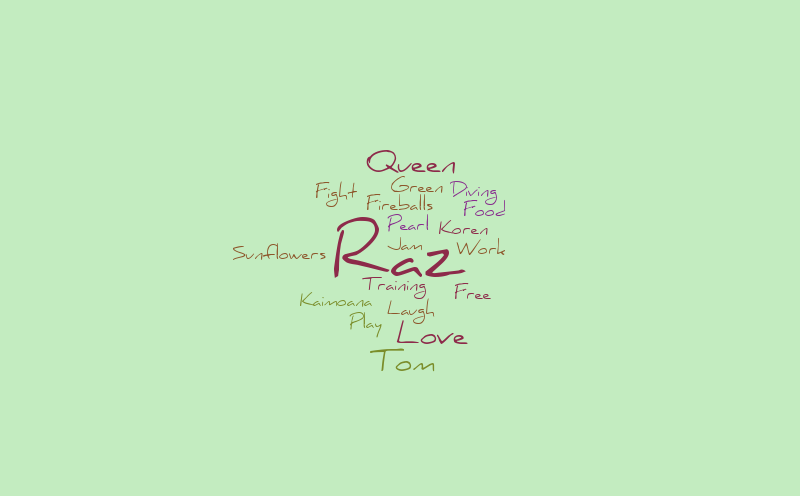 Queen
Fight Green Diving
Fireballs Food
Pearl Koren
Sunflowers Raz Jam Work
Training Free
Kaimoana Laugh
Play Love
Tom